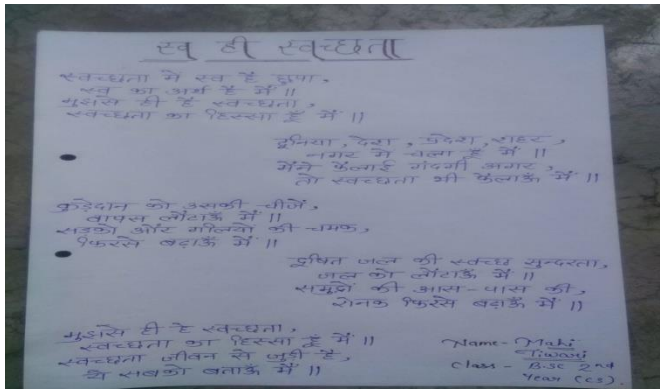 स्व ही स्वच्छता
स्वच्छता मे स्व है छुपा,
स्व का अर्थ है मैं ||
मुझसे ही है स्वच्छता,
स्वच्छता का हिस्सा हूँ मैं ||
दूनिया, देश, प्रदेश, शहर,
नगर मे चला हूँ मैं ||
मैंने फैलाई गंदगी अगर,
तो स्वच्छता भी फैलाऊँ मैं ||
कूड़ेदान को उसकी चीजें,
वापस लौटाऊँ मैं ||
सडको और गलियो की चमक,
फिरसे बढ़ाऊँ मैं ||
दूषित जल की स्वच्छ सुन्दरता,
जल को लौटाऊँ मैं ||
समुद्रो की आस-पास की,
रोनक फिरसे बढ़ाऊँ मैं ||
मुझसे ही है स्वच्छता,
स्वच्छता का हिस्सा हूँ मैं ||
स्वच्छता जीवन से जुड़ी है,
ये सबको बताऊँ मैं ||
Name- Mahi
Tiwari
Class - B.SC 2nd
Year (CS).